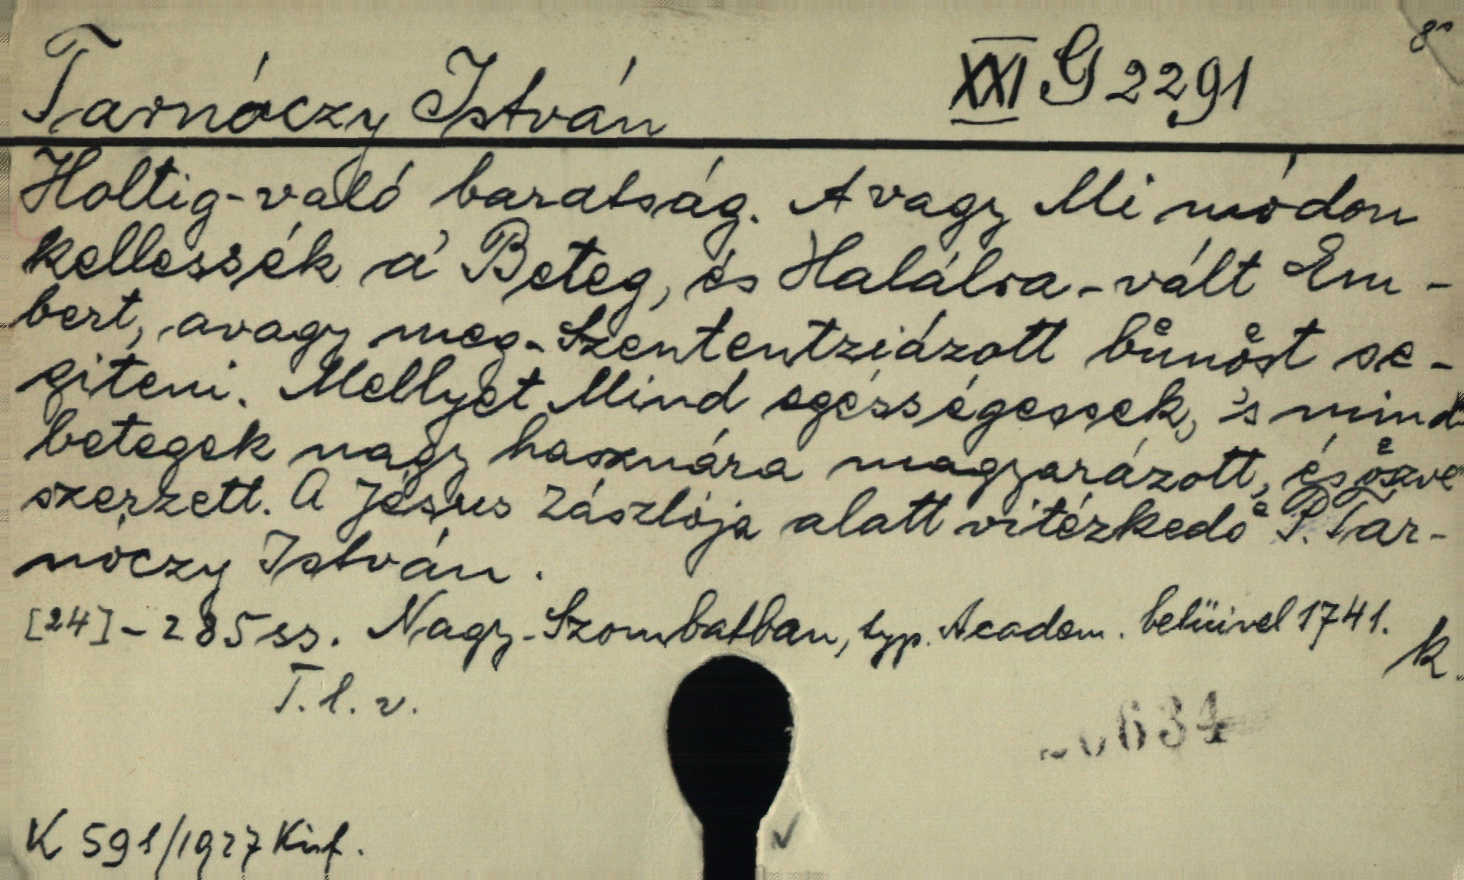 8°
Tarnóczy István XXI G 2291
Holtig-való baratság. Avagy Mi módon
kellessék a' Beteg, és Halálra-vált Em-
bert, avagy meg-Szententziázott bűnöst se-
giteni. Mellyet Mind egésségessek, 's mind
betegek nagy hasznára magyarázott, és öszve
szerzett. A Jésus Zászlója alatt vitézkedö P. Tar-
nóczy István.
[24]-285 ss. Nagy-Szombatban, typ. Academ. betüivel 1741.
k.
T. l. v.
634
K 591/1927 Kisf.